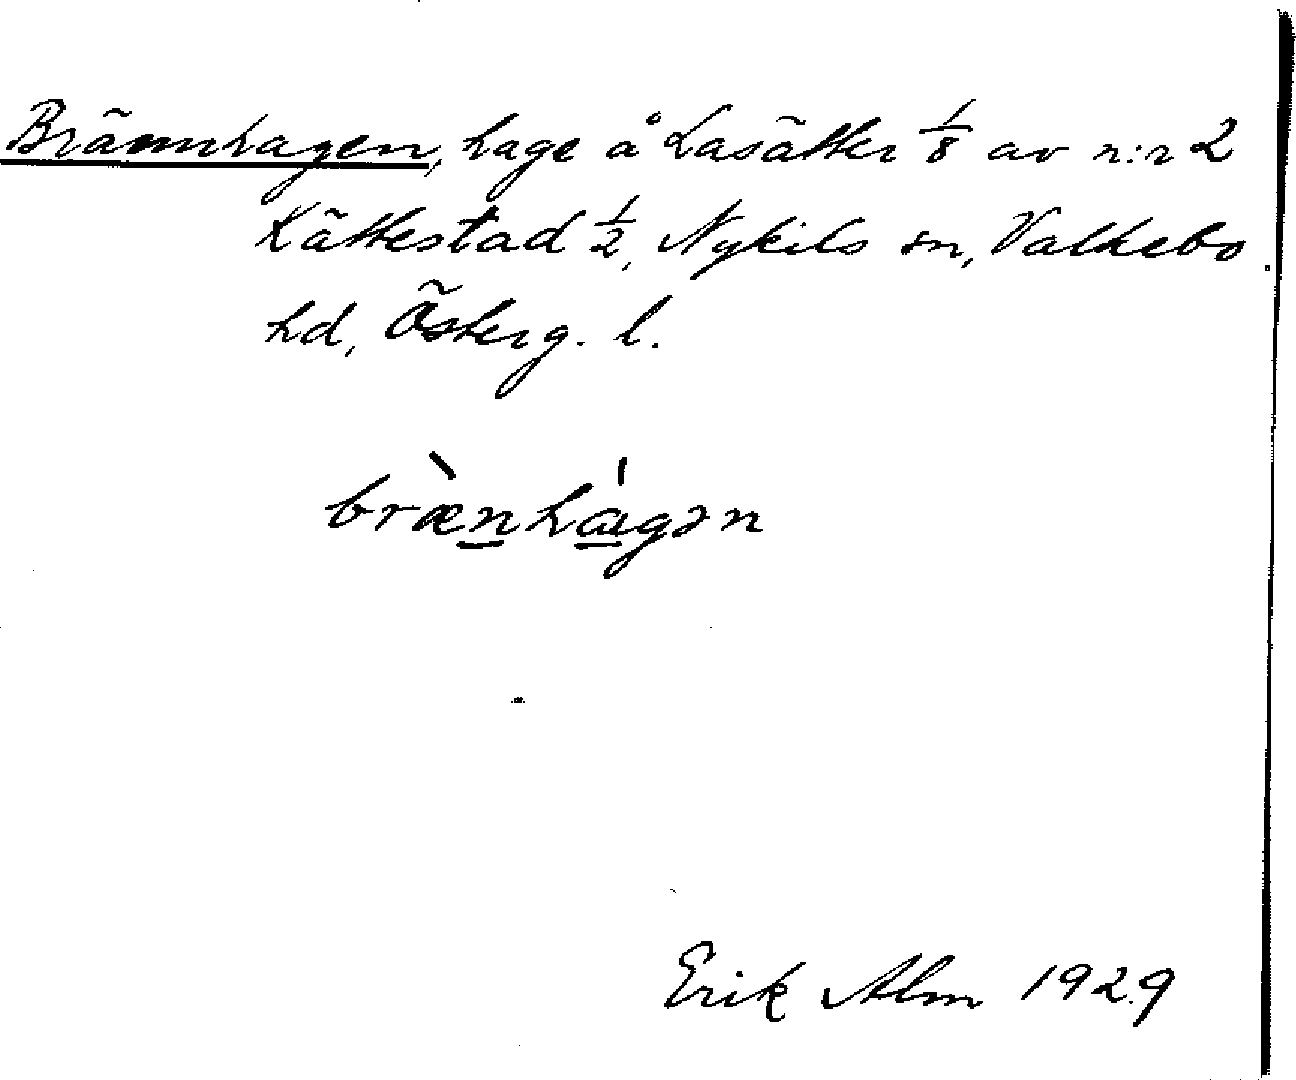 Brännhagen, hage å Lasätter 1/8 av n:r 2
Kättestad 1/2, Nykils sn, Valkebo
hd, Österg. l.
bræ̀nhágən
Erik Alm 1929